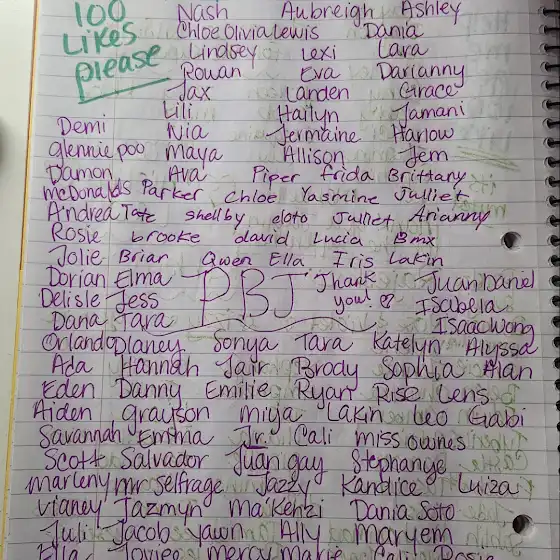 100 Likes please
Nash Aubreigh Ashley
Chloe Olivia Lewis Dania
Lindsey Lexi Lara
Rowan Eva Darianny
Jax Landen Grace
Lili Hailyn Jamani
Demi Nia Jermaine Harlow
glennie poo Maya Allison Jem
Damon Ava Piper frida Brittany
McDonalds Parker Chloe Yasmine Julliet
Andrea Tate shellby eloto Julliet Arianny
Rosie brooke david Lucia Bmx
Jolie Briar Qwen Ella Iris Lakin
Dorian Elma PBJ Thank you! Juan Daniel
Delisle Jess Isabela
Dana Tara Isaac Wong
Orlando Dlaney Sonya Tara Katelyn Alyssa
Ada Hannah Jair Brody Sophia Alan
Eden Danny Emilie Ryart Rise Lens
Aiden grayson miya Lakin Leo Gabi
Savannah Emma Jr. Cali miss ownes
Scott Salvador Juan gay Stephanye
marleny mr selfrage Jazzy Kandice Luiza
vianey Jazmyn Ma'Kenzi Dania Soto
Juli Jacob yawn Ally Maryem
Ella Mercy Marie